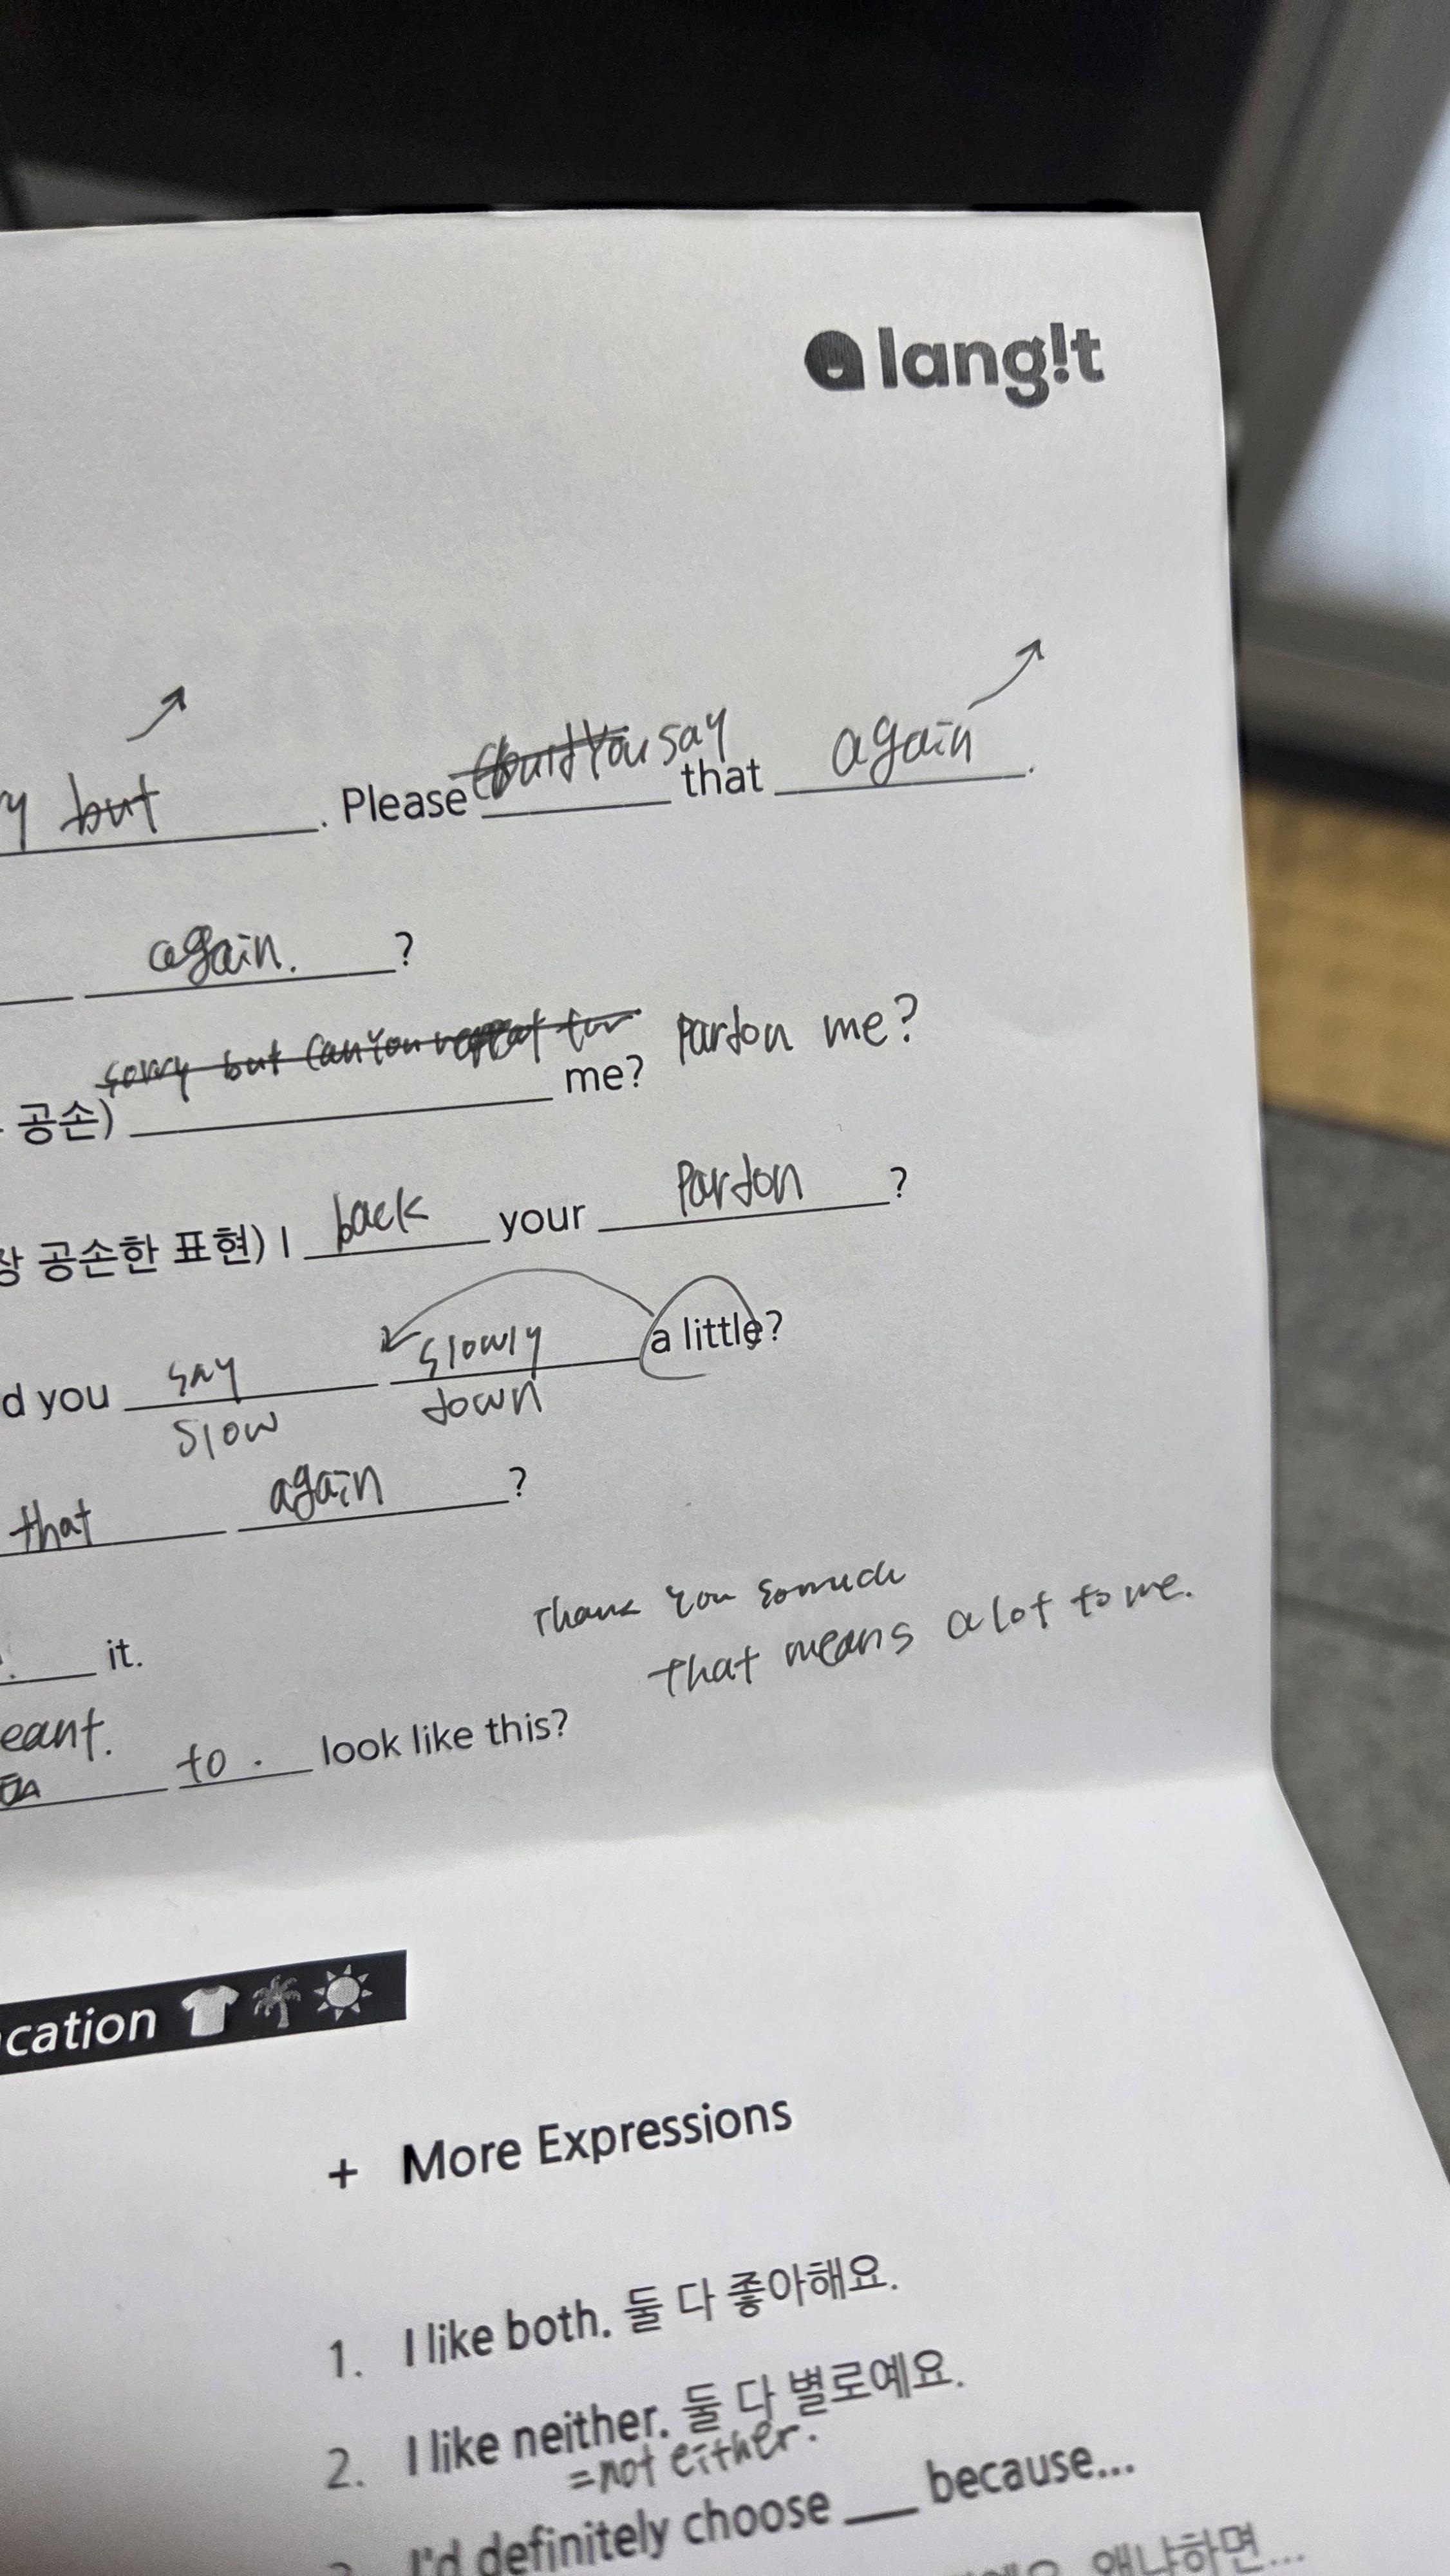 lang!t
y but . Please Could You say that again .
again. ?
sorry but Can You repeat for Pardon me?
공손) me?
장 공손한 표현) I back your Pardon ?
d you say slowly a little?
slow down
that again ?
Thank you somuch
it. that means a lot to me.
eant. to . look like this?
cation
+ More Expressions
1. I like both. 둘 다 좋아해요.
2. I like neither. 둘 다 별로예요.
=not either.
I'd definitely choose ___ because...
왜냐하면...